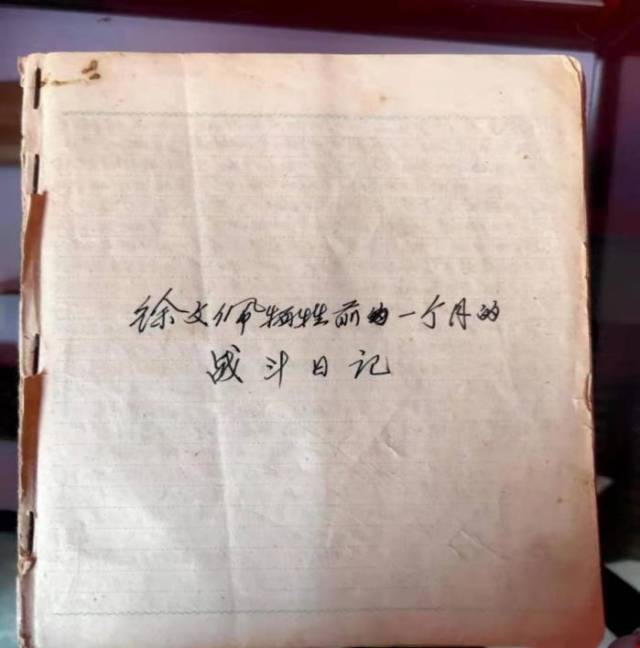 徐文佩牺牲前的一个月的
战斗日记